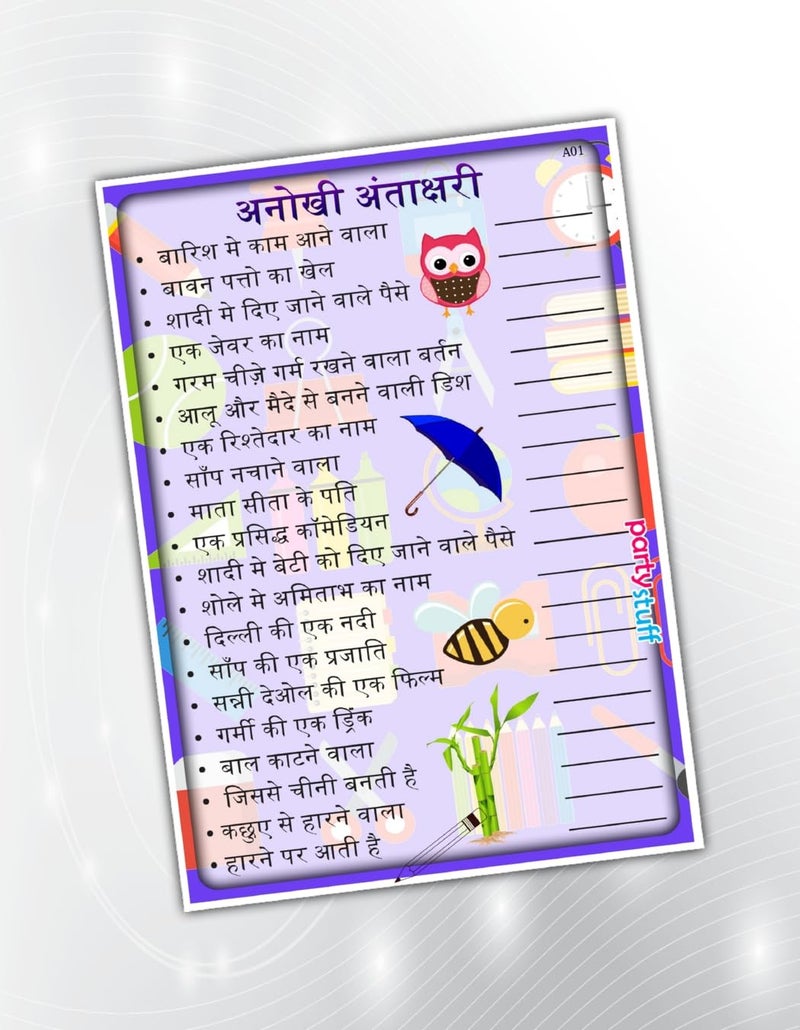 A01
अनोखी अंताक्षरी
• बारिश मे काम आने वाला
• बावन पत्तो का खेल
• शादी मे दिए जाने वाले पैसे
• एक जेवर का नाम
• गरम चीज़े गर्म रखने वाला बर्तन
• आलू और मैदे से बनने वाली डिश
• एक रिश्तेदार का नाम
• साँप नचाने वाला
• माता सीता के पति
• एक प्रसिद्ध कॉमेडियन
• शादी मे बेटी को दिए जाने वाले पैसे
• शोले मे अमिताभ का नाम
• दिल्ली की एक नदी
• साँप की एक प्रजाति
• सन्नी देओल की एक फिल्म
• गर्मी की एक ड्रिंक
• बाल काटने वाला
• जिससे चीनी बनती है
• कछुए से हारने वाला
• हारने पर आती है
partystuff